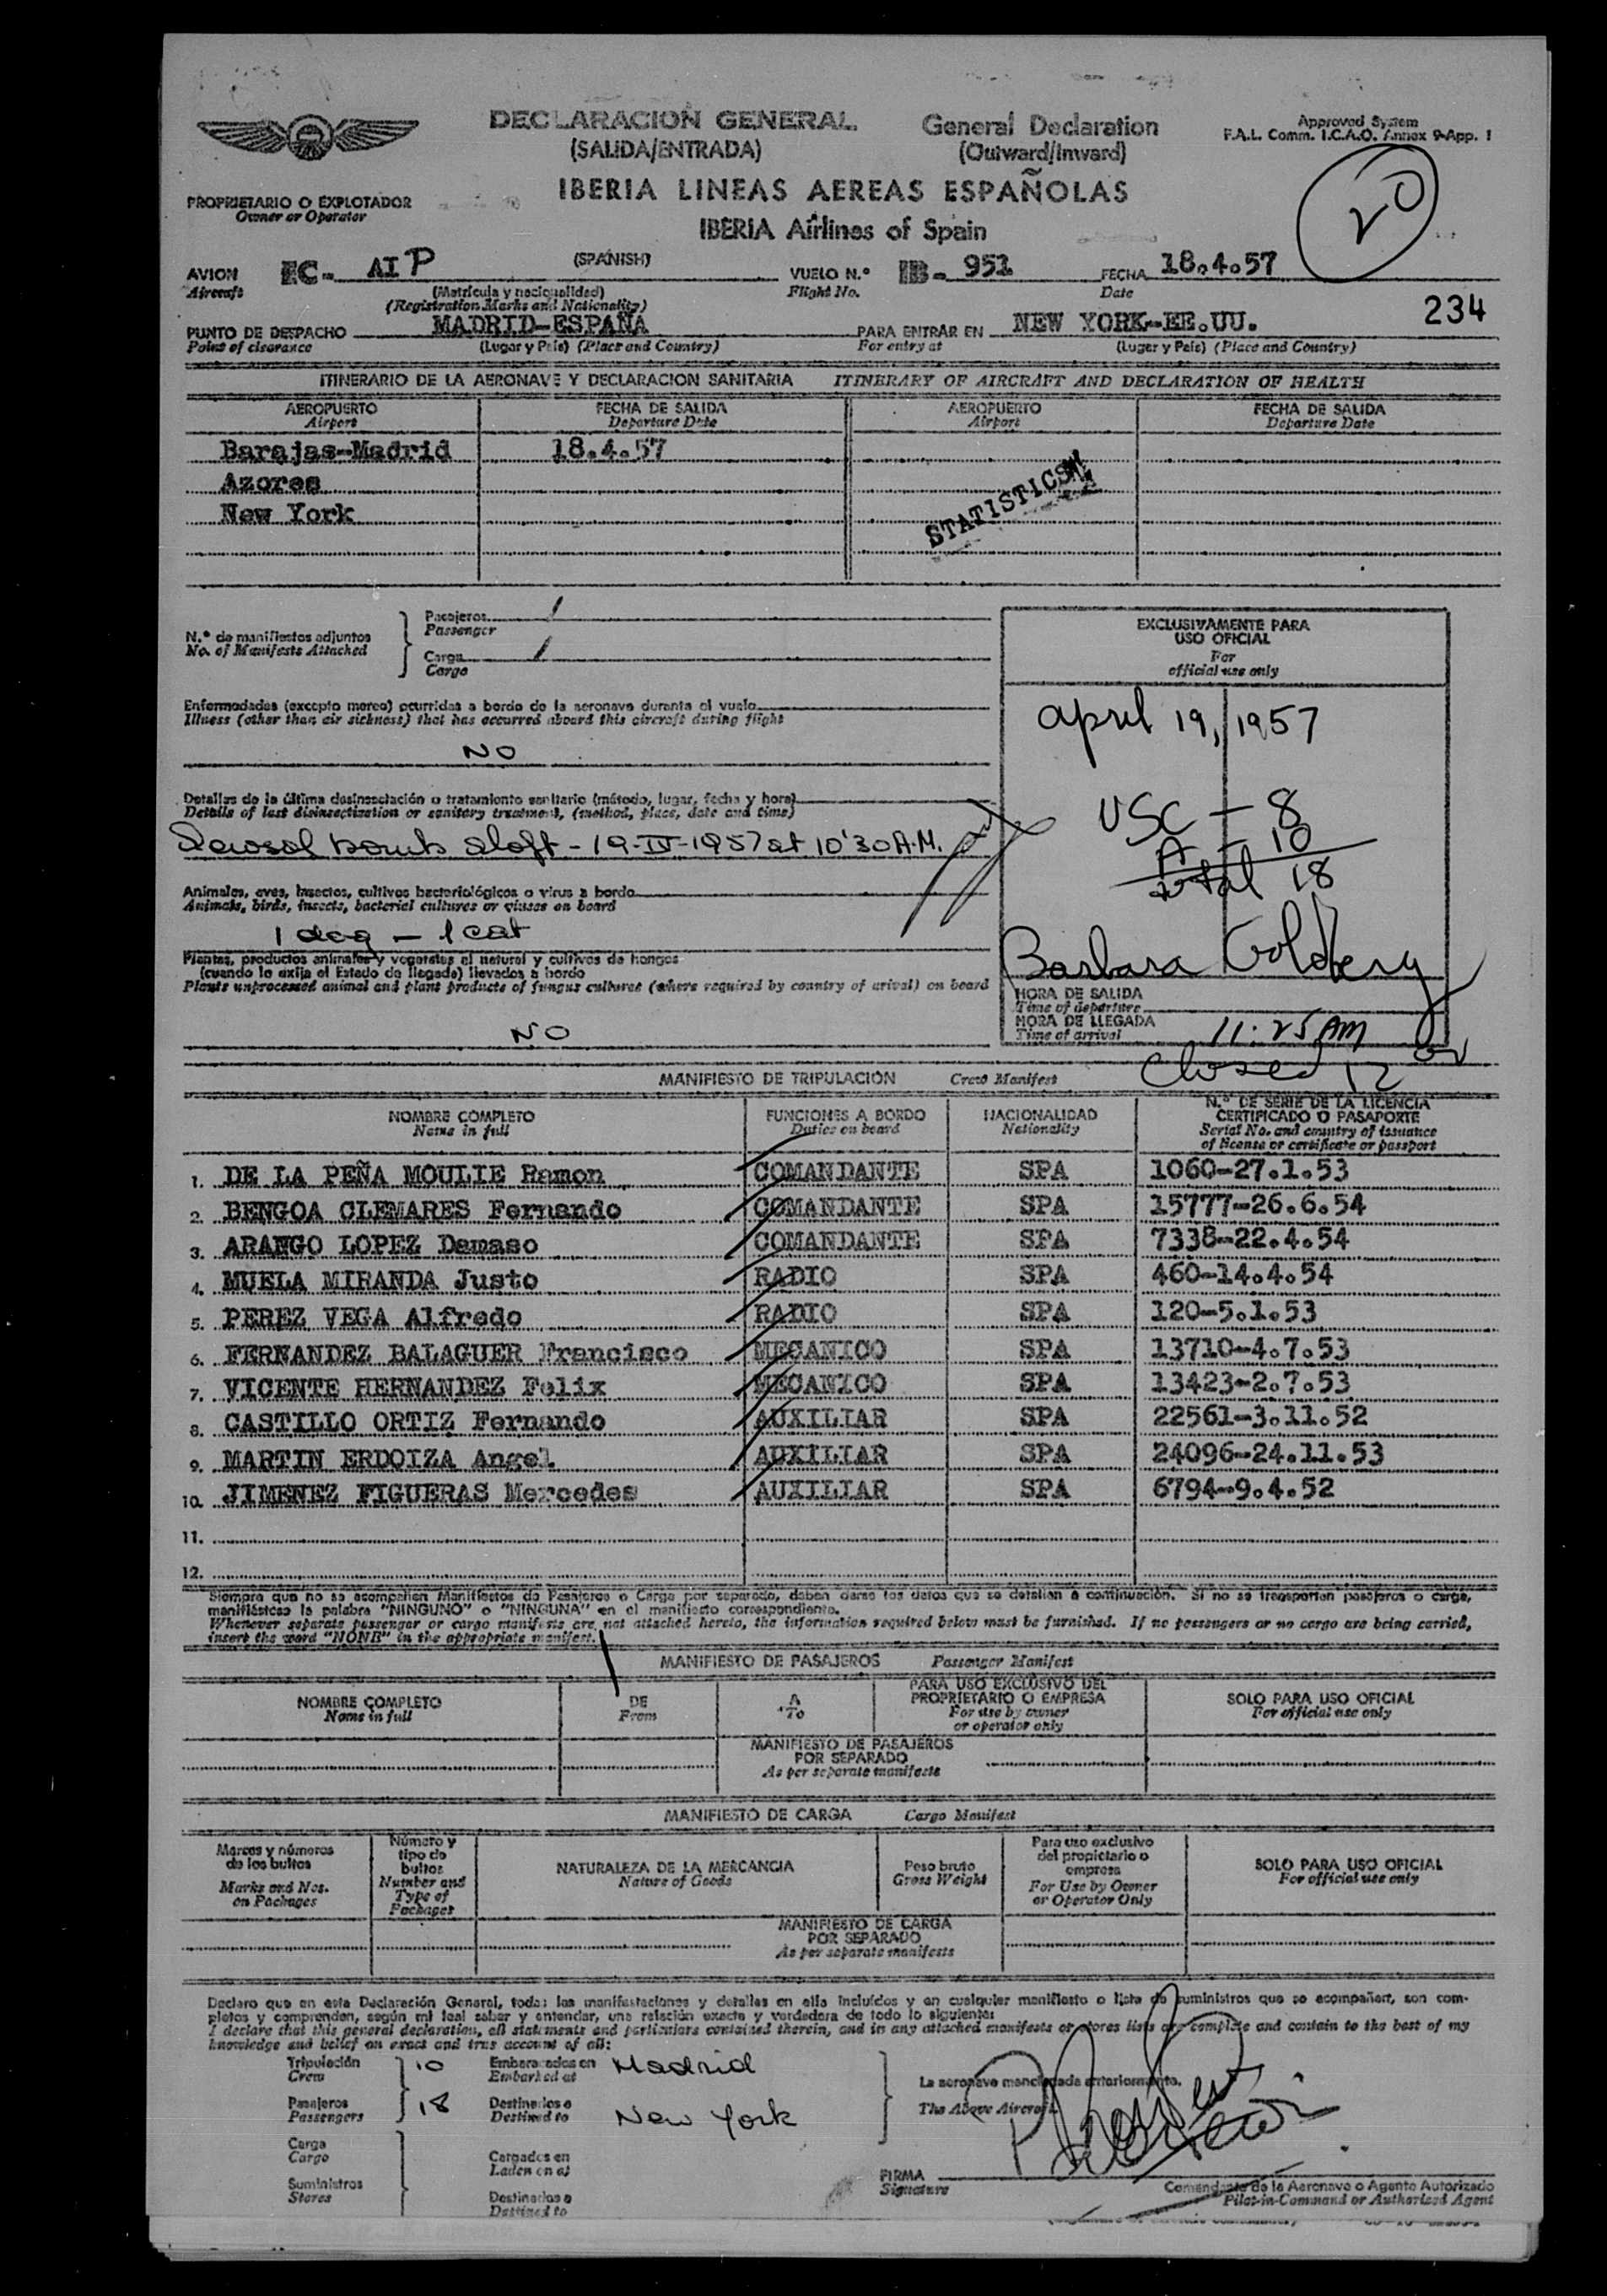 DECLARACION GENERAL General Declaration
(SALIDA/ENTRADA) (Outward/Inward)
Approved System
F.A.L. Comm. I.C.A.O. Annex 9-App. 1
IBERIA LINEAS AEREAS ESPAÑOLAS
IBERIA Airlines of Spain
20
PROPRIETARIO O EXPLOTADOR
Owner or Operator
AVION EC- AIP (SPANISH) VUELO N.º IB- 951 FECHA 18.4.57
Aircraft (Matrícula y nacionalidad) Flight No. Date
(Registration Marks and Nationality)
234
PUNTO DE DESPACHO MADRID-ESPAÑA PARA ENTRAR EN NEW YORK-EE.UU.
Point of clearance (Lugar y País) (Place and Country) For entry at (Lugar y País) (Place and Country)
ITINERARIO DE LA AERONAVE Y DECLARACION SANITARIA ITINERARY OF AIRCRAFT AND DECLARATION OF HEALTH
AEROPUERTO FECHA DE SALIDA AEROPUERTO FECHA DE SALIDA
Airport Departure Date Airport Departure Date
Barajas-Madrid 18.4.57
Azores
New York
STATISTICS
N.º de manifiestos adjuntos
No. of Manifests Attached
Pasajeros 1
Passenger
Carga 1
Cargo
Enfermedades (excepto mareo) ocurridas a bordo de la aeronave durante el vuelo
Illness (other than air sickness) that has occurred aboard this aircraft during flight
NO
Detalles de la última desinsectación o tratamiento sanitario (método, lugar, fecha y hora)
Details of last disinsectization or sanitary treatment, (method, place, date and time)
Aerosol bomb aloft - 19-IV-1957 at 10'30 A.M.
Animales, aves, insectos, cultivos bacteriológicos o virus a bordo
Animals, birds, insects, bacterial cultures or viuses on board
1 dog - 1 cat
Plantas, productos animales y vegetales al natural y cultivos de hongos
(cuando lo exija el Estado de llegada) llevados a bordo
Plants unprocessed animal and plant products of fungus cultures (where required by country of arival) on board
NO
EXCLUSIVAMENTE PARA
USO OFICIAL
For
official use only
april 19, 1957
USC - 8
A - 10
total 18
Barbara Goldberg
HORA DE SALIDA
Time of departure
HORA DE LLEGADA
Time of arrival 11:25 AM
Closed 12
MANIFIESTO DE TRIPULACIÓN Crew Manifest
NOMBRE COMPLETO FUNCIONES A BORDO NACIONALIDAD N.º DE SERIE DE LA LICENCIA
CERTIFICADO O PASAPORTE
Name in full Duties on board Nationality Serial No. and country of issuance
of license or certificate or passport
1. DE LA PEÑA MOULIE Ramon COMANDANTE SPA 1060-27.1.53
2. BENGOA CLEMARES Fernando COMANDANTE SPA 15777-26.6.54
3. ARANGO LOPEZ Damaso COMANDANTE SPA 7338-22.4.54
4. MUELA MIRANDA Justo RADIO SPA 460-14.4.54
5. PEREZ VEGA Alfredo RADIO SPA 120-5.1.53
6. FERNANDEZ BALAGUER Francisco MECANICO SPA 13710-4.7.53
7. VICENTE HERNANDEZ Felix MECANICO SPA 13423-2.7.53
8. CASTILLO ORTIZ Fernando AUXILIAR SPA 22561-3.11.52
9. MARTIN ERDOIZA Angel AUXILIAR SPA 24096-24.11.53
10. JIMENEZ FIGUERAS Mercedes AUXILIAR SPA 6794-9.4.52
11.
12.
Siempre que no se acompañen Manifiestos de Pasajeros o Carga por separado, deben darse los datos que se detallan a continuación. Si no se transportan pasajeros o carga,
manifiéstese la palabra "NINGUNO" o "NINGUNA" en el manifiesto correspondiente.
Whenever separate passenger or cargo manifests are not attached hereto, the information required below must be furnished. If no passengers or no cargo are being carried,
insert the word "NONE" in the appropriate manifest.
MANIFIESTO DE PASAJEROS Passenger Manifest
NOMBRE COMPLETO DE A PARA USO EXCLUSIVO DEL
PROPRIETARIO O EMPRESA SOLO PARA USO OFICIAL
Name in full From To For use by owner
or operator only For official use only
MANIFIESTO DE PASAJEROS
POR SEPARADO
As per separate manifests
MANIFIESTO DE CARGA Cargo Manifest
Marcas y números
de los bultos
Marks and Nos.
on Packages
Número y
tipo de
bultos
Number and
Type of
Packages
NATURALEZA DE LA MERCANCIA
Nature of Goods
Peso bruto
Gross Weight
Para uso exclusivo
del propietario o
empresa
For Use by Owner
or Operator Only
SOLO PARA USO OFICIAL
For official use only
MANIFIESTO DE CARGA
POR SEPARADO
As per separate manifests
Declaro que en esta Declaración General, todas las manifestaciones y detalles en ella incluídos y en cualquier manifiesto o lista de suministros que se acompañen, son com-
pletos y comprenden, según mi leal saber y entender, una relación exacta y verdadera de todo lo siguiente:
I declare that this general declaration, all statements and particulars contained therein, and in any attached manifests or stores lists are complete and contain to the best of my
knowledge and belief an exact and true account of all:
Tripulación 10 Embarcados en Madrid
Crew Embarked at
Pasajeros 18 Destinados a New York
Passengers Destined to
La aeronave mencionada anteriormente.
The Above Aircraft
Carga Cargados en
Cargo Laden on at
Suministros Destinados a
Stores Destined to
FIRMA
Signature
Comandante de la Aeronave o Agente Autorizado
Pilot-in-Command or Authorised Agent